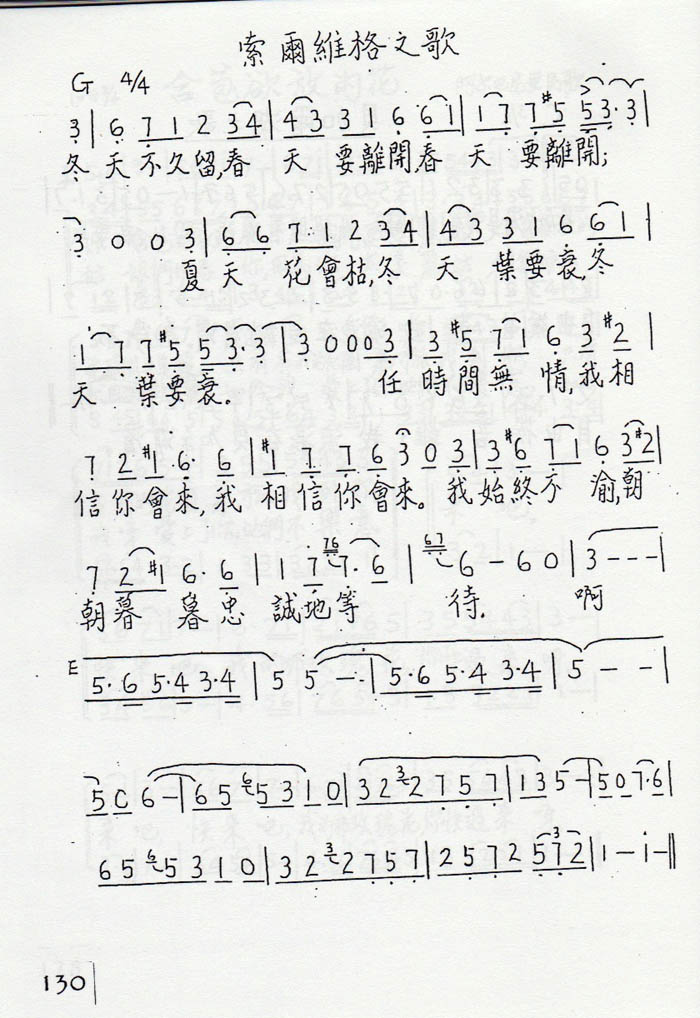 索爾維格之歌
G 4/4
3 | 6 7 1 2 34 | 43 31 6 61 | 17 7 #5 53·3 |
冬 天不久留,春 天 要離開,春 天 要離開;
3 0 0 3 | 66 71 2 34 | 43 31 6 61 |
夏 天 花會枯,冬 天 葉要衰,冬
17 7 #5 53·3 | 3 000 3 | 3 #5 71 6 3 #2 |
天 葉要衰。 任 時間無 情,我相
7 2 #1 6· 6 | #1 7 7 6 3 0 3 | 3 #6 71 6 3#2 |
信你會來,我 相信你會來。我始終不 渝,朝
7 2#1 6· 6 | 1 7 76 7·6 | 67 6 – 6 0 | 3 – – – |
朝暮 暮忠 誠地等 待. 啊
E 5·6 5·4 3·4 | 5 5 – – | 5·6 5·4 3·4 | 5 – – |
5 0 6 – | 65 6 53 1 0 | 32 3 2 7 5 7 | 135 – | 507·6 |
65 6 5 3 1 0 | 32 3 2 7 5 7 | 2 5 7 2 5 3 7 2 | 1 – i – ‖
130